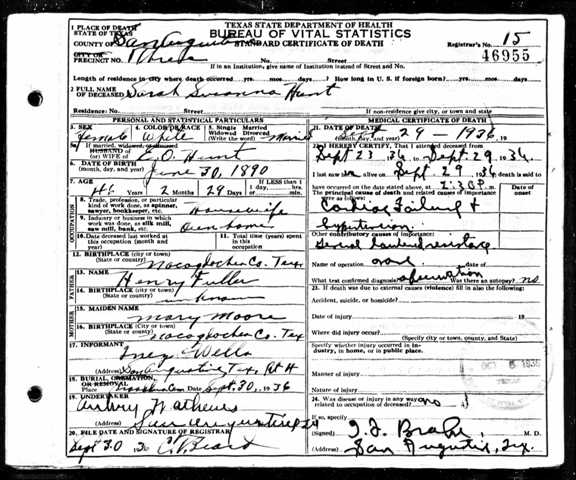 TEXAS STATE DEPARTMENT OF HEALTH
BUREAU OF VITAL STATISTICS
STANDARD CERTIFICATE OF DEATH
1 PLACE OF DEATH
STATE OF TEXAS
COUNTY OF San Augustine
Registrar's No. 15
46955
CITY OR
PRECINCT NO. Three No. Street
If in an institution, give name of institution instead of Street and No.
Length of residence in city where death occurred yrs. mos. days. How long in U. S. if foreign born? yrs. mos. days.
2 FULL NAME
OF DECEASED Sarah Susanna Hunt
Residence: No. Street If non-residence give city, or town and state
PERSONAL AND STATISTICAL PARTICULARS
3. SEX female
4 COLOR OR RACE White
5 Single Married
Widowed Divorced
(Write the word) Married
5a If married, widowed, or divorced
HUSBAND OF
(or) WIFE OF E. O. Hunt
6 DATE OF BIRTH
(month, day, and year) June 30, 1890
7 AGE 46 2 Months 29 Days
IF LESS THAN
1 day, hrs. min.
OCCUPATION
8 Trade, profession, or particular
kind of work done, as spinner,
sawyer, bookkeeper, etc. Housewife
9 Industry or business in which
work was done, as silk mill,
saw mill, bank, etc. own home
10 Date deceased last worked at
this occupation (month and
year)
11 Total time (years)
spent in this
occupation
12 BIRTHPLACE (city or town)
(State or country) Nacogdoches Co. Tex
FATHER
13 NAME Henry Fuller
14 BIRTHPLACE (City or town)
(State or country) unknown
MOTHER
15 MAIDEN NAME Mary Moore
16 BIRTHPLACE (City or town)
(State or country) Nacogdoches Co. Tex
17 INFORMANT
Inez Wells
(Address) San Augustine, Tex, Rt 4
18 BURIAL, CREMATION,
OR REMOVAL
Date Sept. 30, 1936
19 UNDERTAKER
Mathews
(Address) San Augustine
20 FILE DATE AND SIGNATURE OF REGISTRAR
Sept 30 Beard
MEDICAL CERTIFICATE OF DEATH
21 DATE OF DEATH
(month, day, and year) Sept 29 - 1936, 19
22 I HEREBY CERTIFY, That I attended deceased
from Sept 23, 36 to Sept. 29, 36
I last saw alive on Sept. 29, 36 death is said to
have occurred on the date stated above, at 2:30 P. m.
The principal cause of death and related causes of importance
were as follows:
Date of onset
Cardiac Failure &
hypertension
Other contributory causes of importance:
Name of operation none date of
What test confirmed diagnosis? observation Was there an autopsy? no
23. If death was due to external causes (violence) fill in also the following:
Accident, suicide, or homicide?
Date of injury 19
Where did injury occur?
(Specify city or town, county, and State)
Specify whether injury occurred in industry, in home, or in public place.
Manner of injury
Nature of injury
24. Was disease or injury in any way
related to occupation of deceased? no
(Signed) M. D.
(Address) San Augustine, Tex.